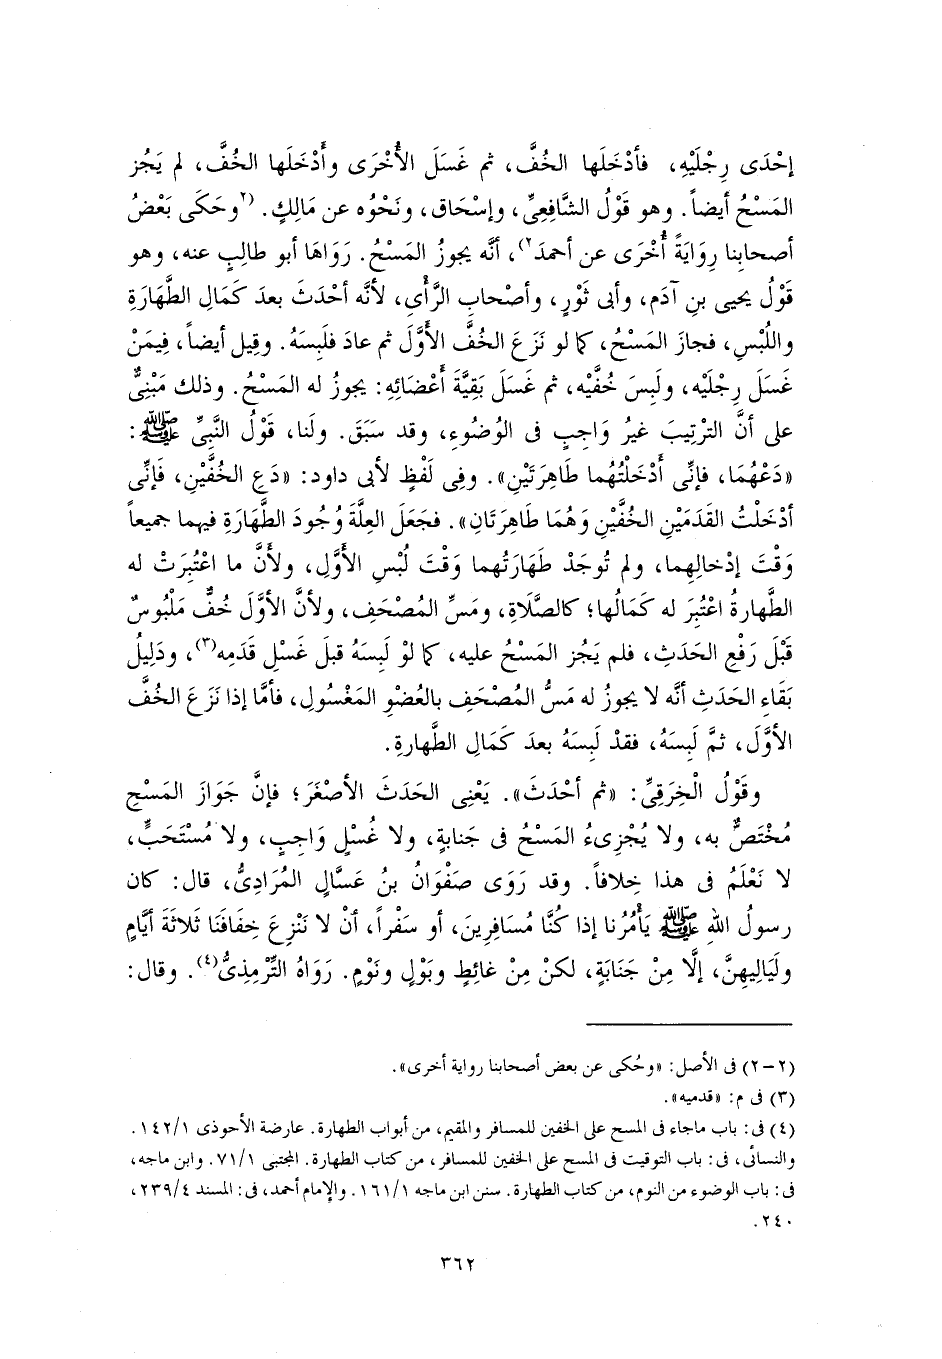 إحْدَى رِجْلَيْهِ، فأدْخَلَها الخُفَّ، ثم غَسَلَ الأُخْرَى وأَدْخَلَها الخُفَّ، لم يَجُز
المَسْحُ أيضاً. وهو قَوْلُ الشَّافِعِىِّ، وإسْحَاق، ونَحْوُه عن مَالِكٍ. (٢وحَكَى بَعْضُ
أصحابِنا رِوَايَةً أُخْرَى عن أحمدَ٢)، أنَّه يجوزُ المَسْحُ. رَوَاهَا أبو طالِبٍ عنه، وهو
قَوْلُ يحيى بنِ آدَم، وأبى ثَوْرٍ، وأصْحابِ الرَّأْىِ، لأنَّه أحْدَثَ بعدَ كَمَالِ الطَّهَارَةِ
واللُّبْسِ، فجازَ المَسْحُ، كما لو نَزَعَ الخُفَّ الأَوَّلَ ثم عادَ فلَبِسَهُ. وقِيل أيضاً، فِيمَنْ
غَسَلَ رِجْلَيْه، ولَبِسَ خُفَّيْه، ثم غَسَلَ بَقِيَّةَ أعْضَائِهِ: يجوزُ له المَسْحُ. وذلك مَبْنِىٌّ
على أنَّ التَرْتِيبَ غيرُ وَاجِبٍ فى الوُضُوءِ، وقد سَبَقَ. ولَنا، قَوْلُ النَّبِىِّ ﷺ:
«دَعْهُمَا، فإنِّى أَدْخَلْتُهُما طَاهِرَتَيْنِ». وفِى لَفْظٍ لأبى داود: «دَعِ الخُفَّيْنِ، فَإنِّى
أدْخَلْتُ القَدَمَيْنِ الخُفَّيْنِ وَهُمَا طاهِرَتَانِ». فجَعَلَ العِلَّةَ وُجُودَ الطَّهَارَةِ فيهما جميعاً
وَقْتَ إدْخالِهِما، ولم تُوجَدْ طَهَارَتُهما وَقْتَ لُبْسِ الأَوَّلِ، ولأَنَّ ما اعْتُبِرَتْ له
الطَّهارةُ اعْتُبِرَ له كمَالُها؛ كالصَّلَاةِ، ومَسِّ المُصْحَفِ، ولأنَّ الأوَّلَ خُفٌّ مَلْبُوسٌ
قَبْلَ رَفْعِ الحَدَثِ، فلم يَجُز المَسْحُ عليه، كما لوْ لَبِسَهُ قبلَ غَسْلِ قَدَمِه(٣)، ودَلِيلُ
بَقَاءِ الحَدَثِ أنَّه لا يجوزُ له مَسُّ المُصْحَفِ بالعُضْوِ المَغْسُولِ، فأمَّا إذا نَزَعَ الخُفَّ
الأوَّلَ، ثمَّ لَبِسَهُ، فقدْ لَبِسَهُ بعدَ كَمَالِ الطَّهارةِ.
وقَوْلُ الْخِرَقِىِّ: «ثم أحْدَثَ». يَعْنِى الحَدَثَ الأصْغَرَ؛ فإنَّ جَوَازَ المَسْحِ
مُخْتَصٌّ به، ولا يُجْزِىءُ المَسْحُ فى جَنابةٍ، ولا غُسْلٍ وَاجِبٍ، ولا مُسْتَحَبٍّ،
لا نَعْلَمُ فى هذا خِلافاً. وقد رَوَى صَفْوَانُ بنُ عَسَّالٍ المُرَادِىُّ، قال: كان
رسولُ اللهِ ﷺ يَأْمُرُنا إذا كُنَّا مُسَافِرِينَ، أو سَفْراً، أنْ لا نَنْزِعَ خِفَافَنَا ثَلاثَةَ أيَّامٍ
ولَيَالِيهِنَّ، إلَّا مِنْ جَنَابَةٍ، لكنْ مِنْ غائِطٍ وبَوْلٍ ونَوْمٍ. رَوَاهُ التِّرْمِذِىُّ(٤). وقال:
(٢-٢) فى الأصل: «وحُكى عن بعض أصحابنا رواية أخرى».
(٣) فى م: «قدميه».
(٤) فى: باب ماجاء فى المسح على الخفين للمسافر والمقيم، من أبواب الطهارة. عارضة الأحوذى ١٤٢/١.
والنسائى، فى: باب التوقيت فى المسح على الخفين للمسافر، من كتاب الطهارة. المجتبى ٧١/١. وابن ماجه،
فى: باب الوضوء من النوم، من كتاب الطهارة. سنن ابن ماجه ١٦١/١. والإمام أحمد، فى: المسند ٢٣٩/٤،
٢٤٠.
٣٦٢